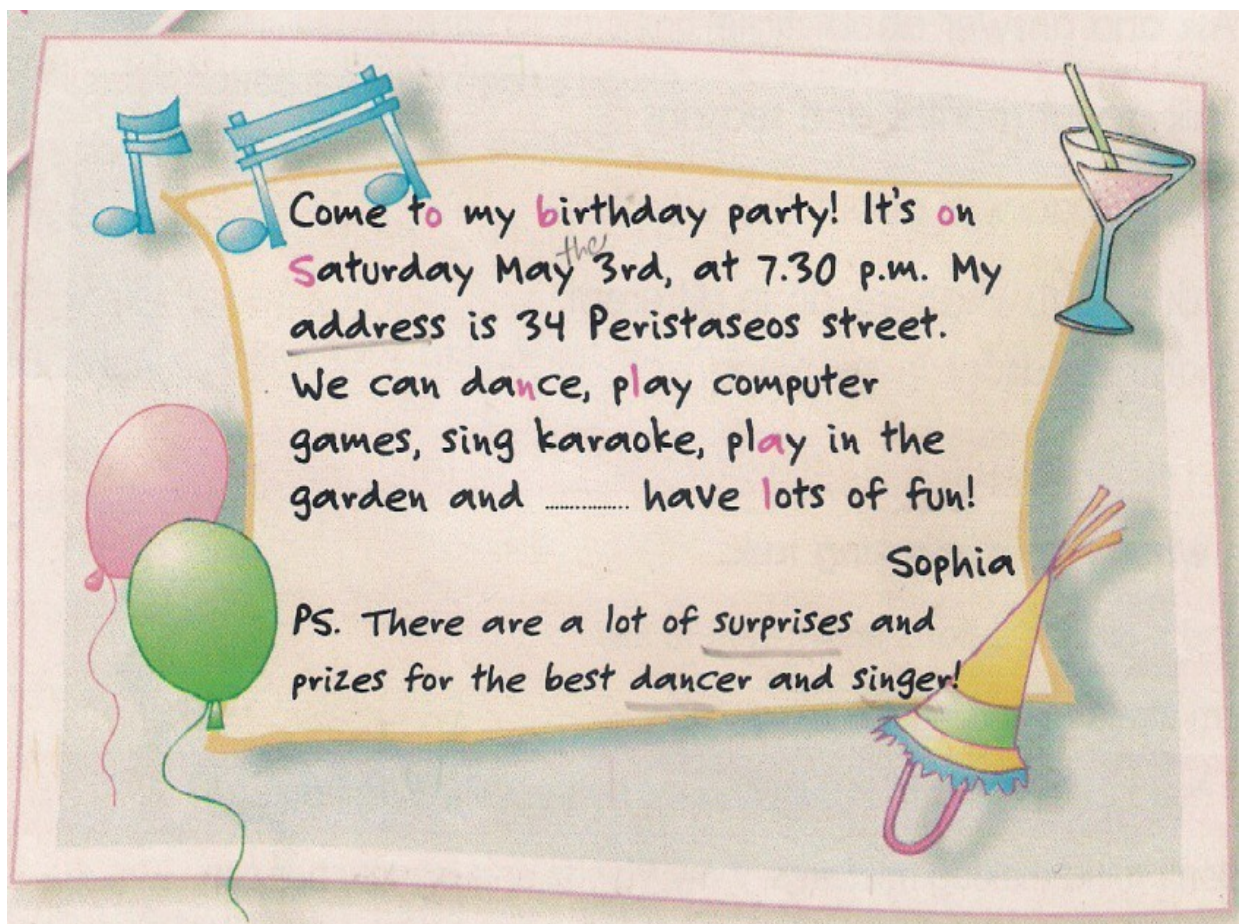 Come to my birthday party! It's on
the
Saturday May 3rd, at 7.30 p.m. My
address is 34 Peristaseos street.
We can dance, play computer
games, sing karaoke, play in the
garden and ............... have lots of fun!
Sophia
PS. There are a lot of surprises and
prizes for the best dancer and singer!